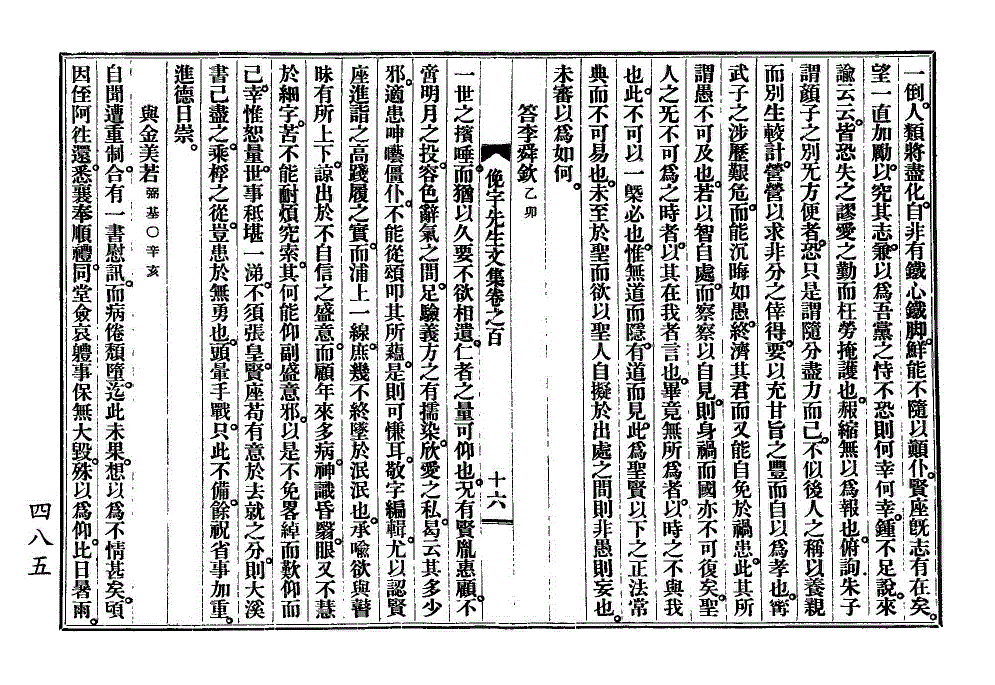 一倒。人類將盡化。自非有鐵心鐵脚。鮮能不隨以顚仆。賢座旣志有在矣。
望一直加勵。以究其志。兼以爲吾黨之恃。不恐則何幸何幸。鍾不足說。來
諭云云。皆恐失之謬愛之勤而枉勞掩護也。赧縮無以爲報也。俯詢朱子
謂顔子之別无方便者。恐只是謂隨分盡力而已。不似後人之稱以養親
而別生較計。營營以求非分之倖得。要以充甘旨之豐而自以爲孝也。甯
武子之涉歷艱危。而能沉晦如愚。終濟其君而又能自免於禍患。此其所
謂愚不可及也。若以智自處。而察察以自見。則身禍而國亦不可復矣。聖
人之旡不可爲之時者。以其在我者言也。畢竟無所爲者。以時之不與我
也。此不可以一槩必也。惟無道而隱。有道而見。此爲聖賢以下之正法常
典而不可易也。未至於聖而欲以聖人自擬於出處之間則非愚則妄也。
未審以爲如何。
答李舜欽 乙卯
俛宇先生文集卷之百 十六
一世之擯唾。而猶以久要不欲相遺。仁者之量可仰也。况有賢胤惠顧。不
啻明月之投。容色辭氣之間。足驗義方之有擩染。欣愛之私。曷云其多少
邪。適患呻囈僵仆。不能從頌叩其所蘊。是則可慊耳。敬字編輯。尤以認賢
座進詣之高。踐履之實。而浦上一線。庶幾不終墜於泯泯也。承喩欲與瞽
昧有所上下。諒出於不自信之盛意。而顧年來多病。神識昏翳。眼又不慧
於細字。苦不能耐煩究索。其何能仰副盛意邪。以是不免畧綽而歎仰而
已。幸惟恕量。世事秪堪一涕。不須張皇。賢座苟有意於去就之分。則大溪
書已盡之。乘桴之從。豈患於無勇也。頭暈手戰。只此不備。餘祝省事加重。
進德日崇。
與金美若 弼基○辛亥
自聞遭重制。合有一書慰訊。而病倦頹墮。迄此未果。想以爲不情甚矣。頃
因侄阿徃還。悉襄奉順禮。同堂僉哀軆事保無大毁。殊以爲仰。比日暑雨。
四八五